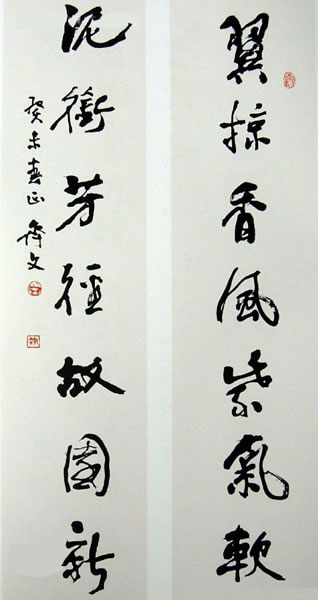 翼掠香風紫氣軟
泥銜芳徑故園新
癸未春正齊文